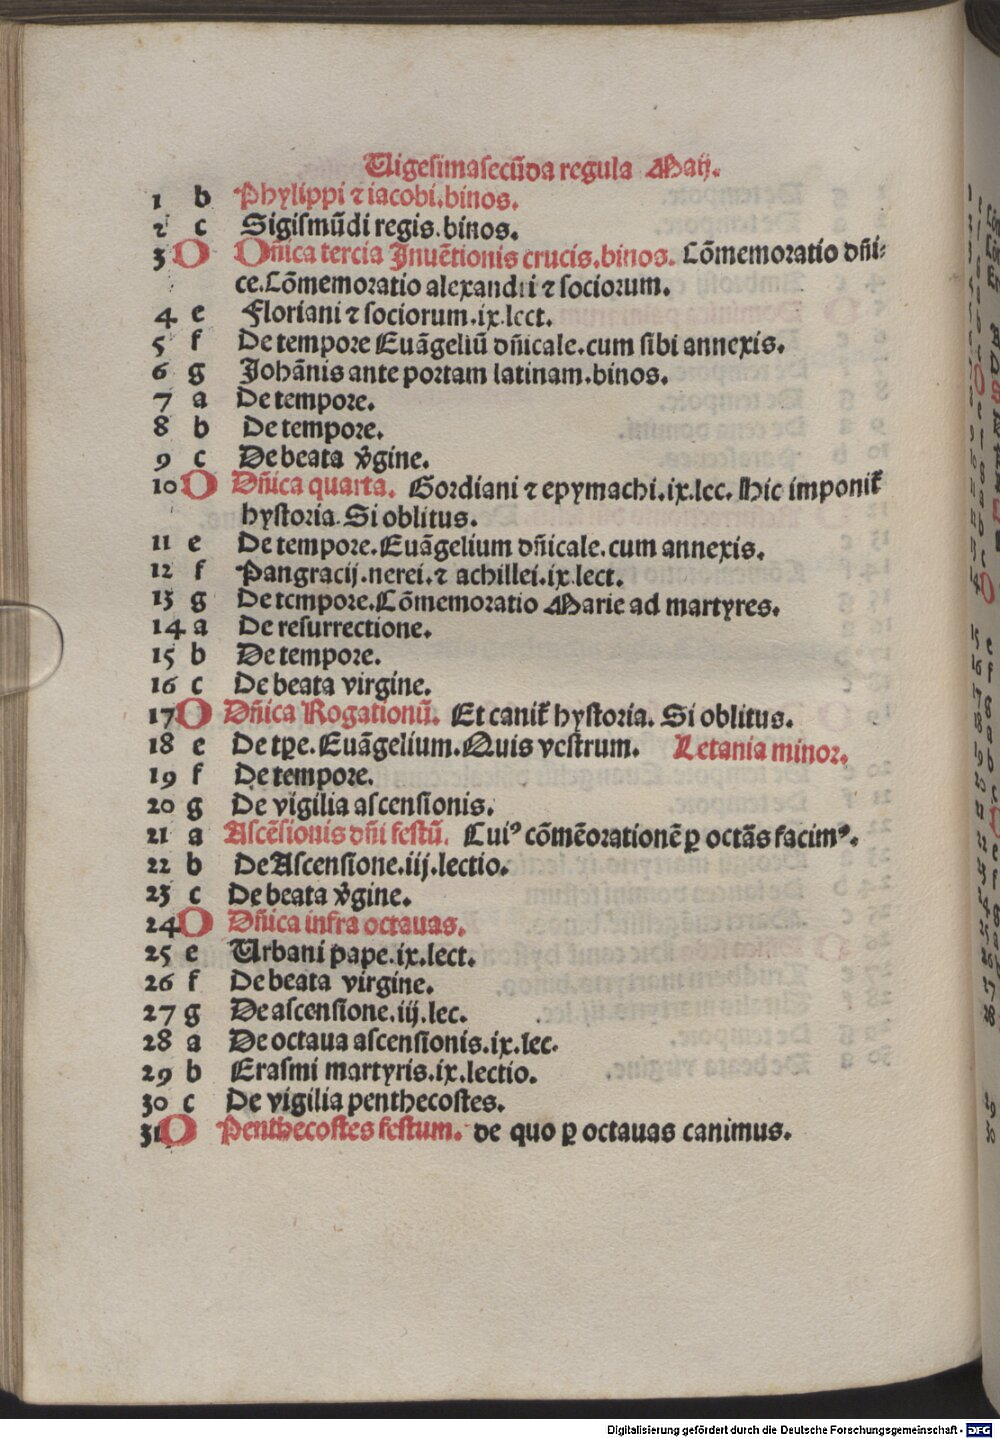 Uigesimasecūda regula Maij.
1 b Phylippi ⁊ iacobi.binos.
2 c Sigismūdi regis.binos.
3 D Dñica tercia Inuētionis crucis.binos. Cōmemoratio dñi⸗
ce.Cōmemoratio alexandri ⁊ sociorum.
4 e Floriani ⁊ sociorum.ix.lect.
5 f De tempore Euāgeliū dñicale.cum sibi annexis.
6 g Johānis ante portam latinam.binos.
7 a De tempore.
8 b De tempore.
9 c De beata v̄gine.
10 D Dñica quarta. Gordiani ⁊ epymachi.ix.lec. Hic imponit̄
hystoria. Si oblitus.
11 e De tempore.Euāgelium dñicale.cum annexis.
12 f Pangracij.nerei.⁊ achillei.ix.lect.
13 g De tempore.Cōmemoratio Marie ad martyres.
14 a De resurrectione.
15 b De tempore.
16 c De beata virgine.
17 D Dñica Rogationū. Et canit̄ hystoria. Si oblitus.
18 e De tꝑe.Euāgelium.Quis vestrum. Letania minor.
19 f De tempore.
20 g De vigilia ascensionis.
21 a Ascēsionis dñi festū. Cuiꝰ cōmēorationē ꝑ octās facimꝰ.
22 b De Ascensione.iij.lectio.
23 c De beata v̄gine.
24 D Dñica infra octauas.
25 e Urbani pape.ix.lect.
26 f De beata virgine.
27 g De ascensione.iij.lec.
28 a De octaua ascensionis.ix.lec.
29 b Erasmi martyris.ix.lectio.
30 c De vigilia penthecostes.
31 D Penthecostes festum. de quo ꝑ octauas canimus.
Digitalisierung gefördert durch die Deutsche Forschungsgemeinschaft - DFG